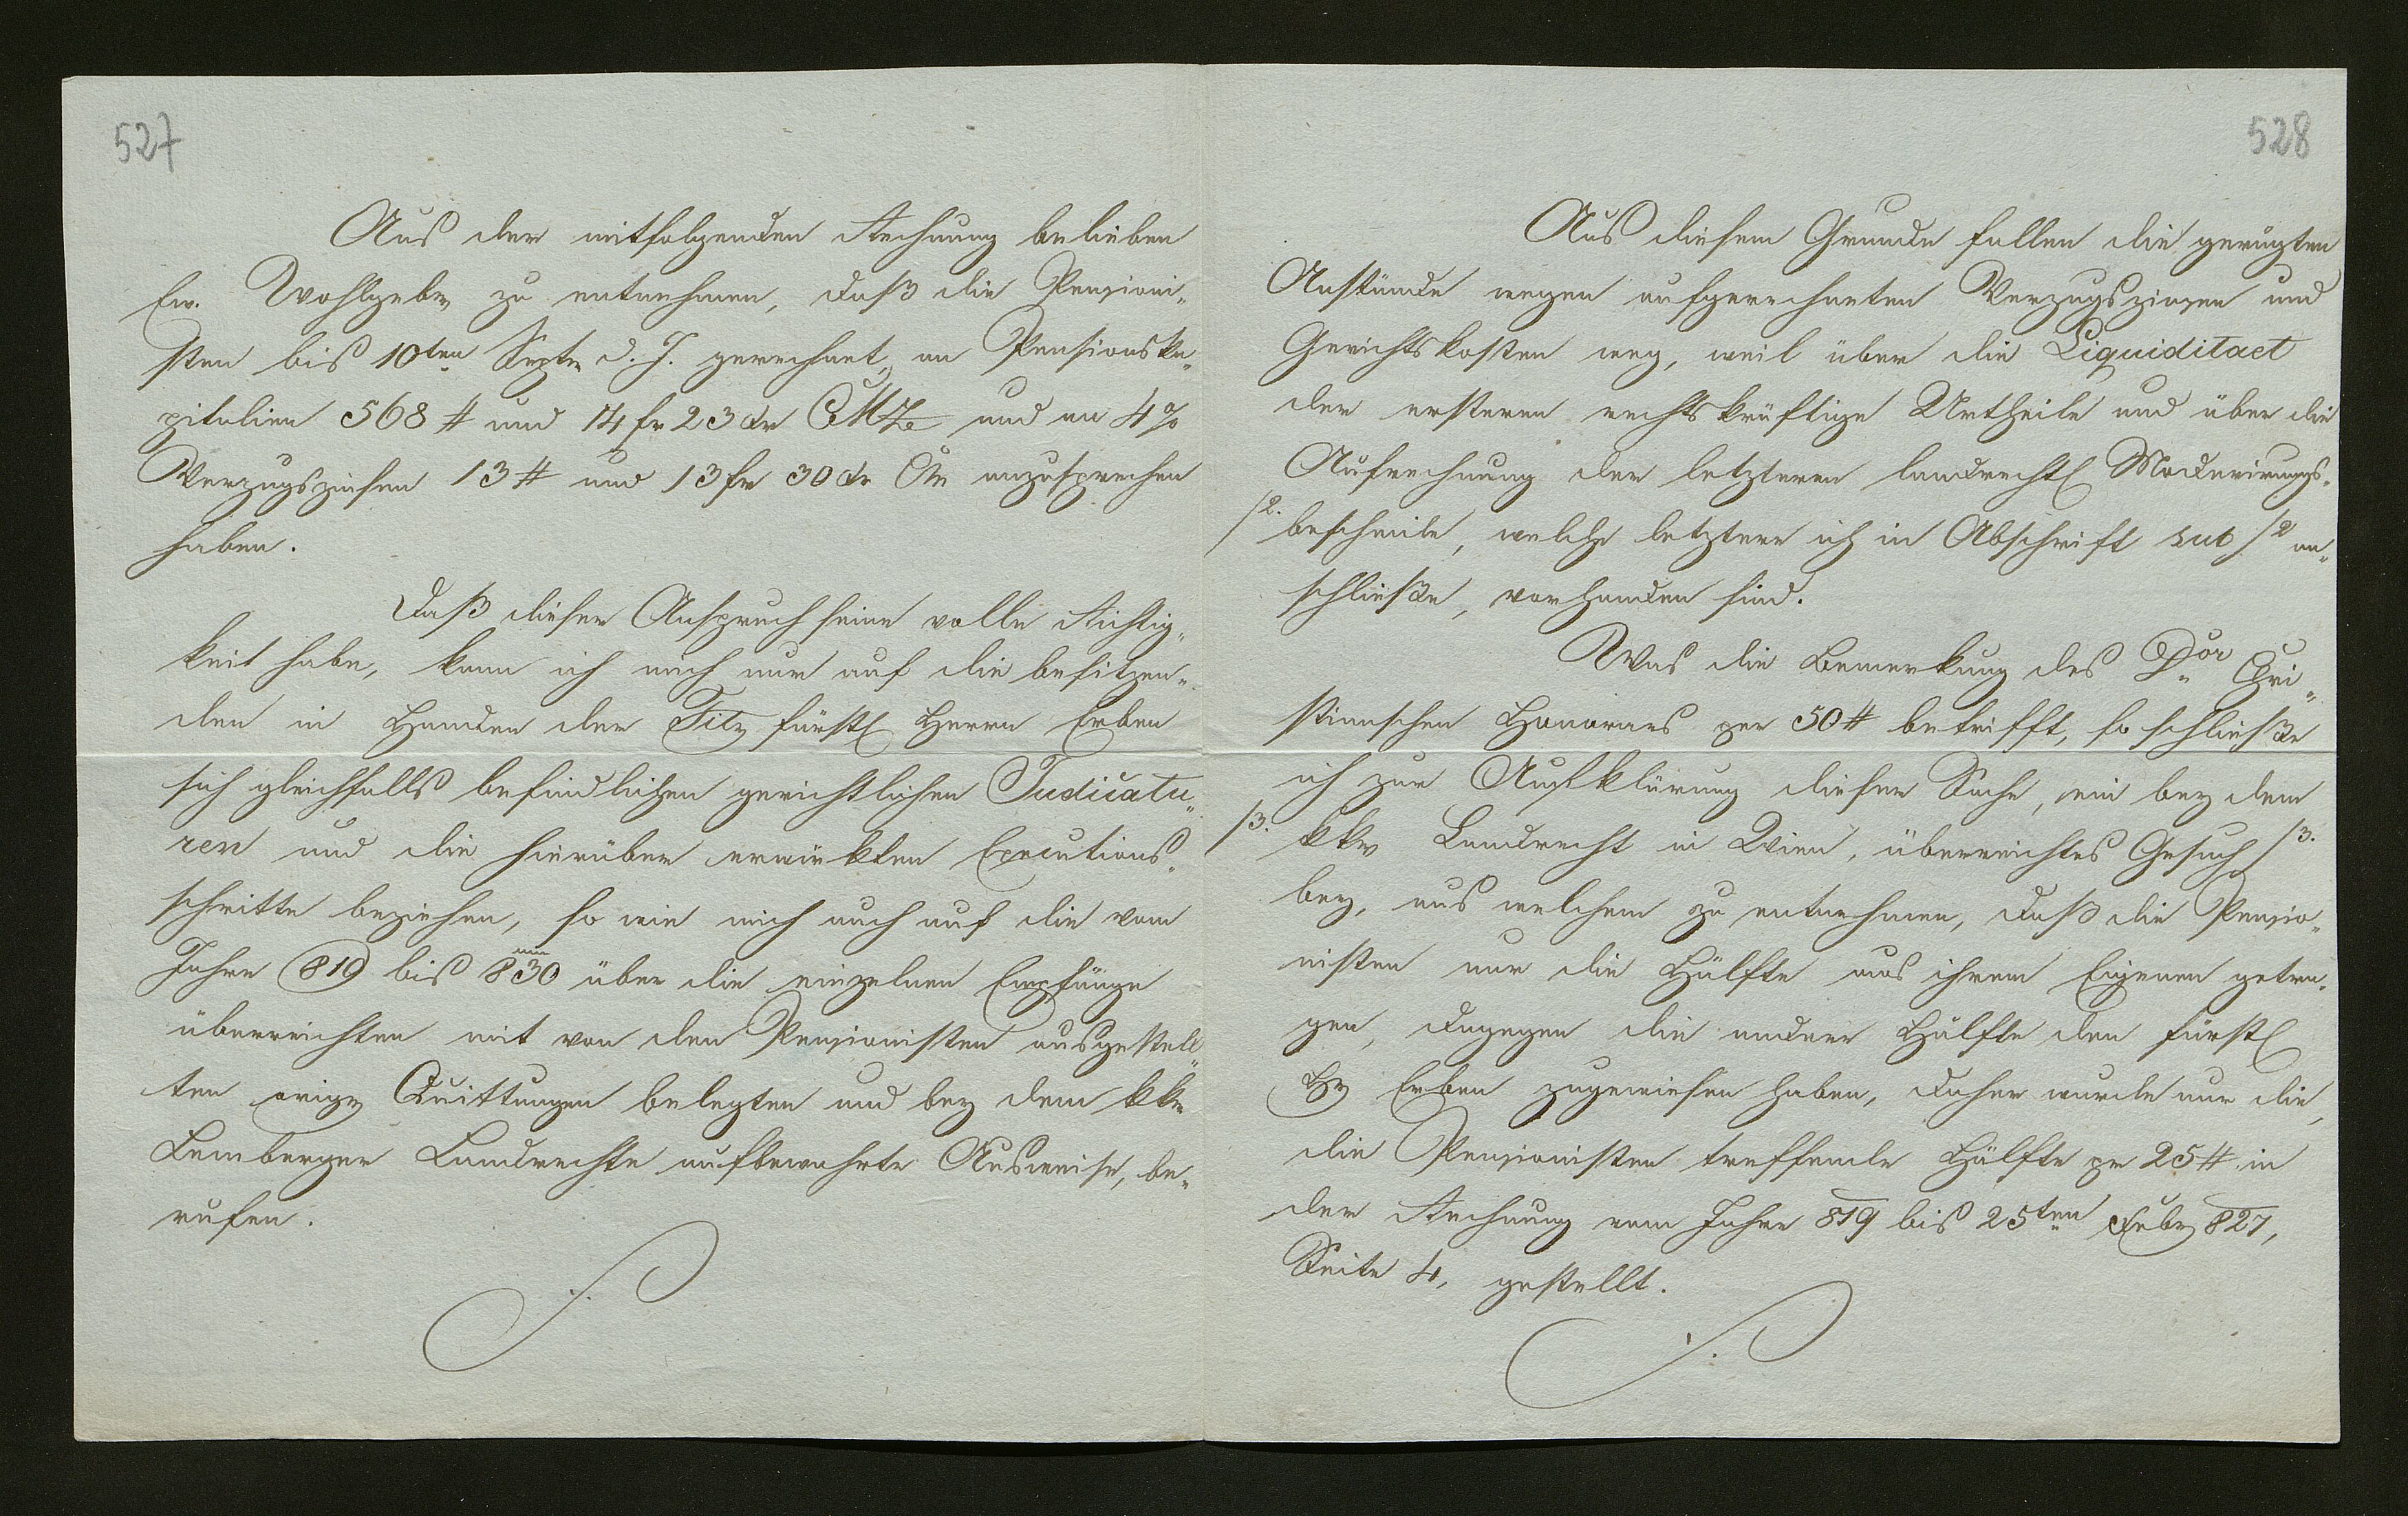 527
Aus der mitfolgenden Rechnung belieben
Ew. Wohlgebr zu entnehmen, daß die Pensioni„
sten bis 10ten Septr d. J. gerechnet, an Pensionska„
pitalien 568 # und 14 fr 23 xr CMze und an 4%
Verzugszinsen 13 # und 13 fr 30 xr CM anzusprechen
haben.
Daß dieser Anspruch seine volle Richtig„
keit habe, kann ich mich nur auf die besitzen„
den in Handen der Titz fürstl Herrn Erben
sich gleichfalls befindlichen gerichtlichen Judicatu„
ren und die hierüber erwirkten Executions„
schritte beziehen, so wie mich auch auf die vom
Jahre 819 bis 830 über die einzelnen Empfänge
überreichten mit von den Pensionisten ausgestell„
ten origr Quittungen belegten und bey dem kkn
Lemberger Landrechte aufbewahrte Ausweise, be„
rufen.
528
Aus diesem Grunde fallen die gerugten
Anstände wegen aufgerechneten Verzugszinsen und
Gerichtskosten weg, weil über die Liquiditaet
der ersteren rechtskräftige Urtheile und über die
Aufrechnung der letzteren landrechtl Moderirungs„
/2. bescheide, welche letztere ich in Abschrift sub /2 an„
schließe, vorhanden sind.
Was die Bemerkung des Dor Chri„
stianschen Honorars per 50 # betrifft, so schließe
ich zur Aufklärung dieser Sache, ein bey dem
/3. kkn Landrecht in Wien, überreichtes Gesuch /3.
bey, aus welchem zu entnehmen, daß die Pensio„
nisten nur die Hälfte aus ihrem Eigenen getra„
gen, dagegen die andere Hälfte den fürstl
Hr Erben zugewiesen haben, daher wurde nur die,
die Pensionisten treffende Hälfte pr 25 # in
der Rechnung vom Jahre 819 bis 25ten Febr 827,
Seite 4, gestellt.